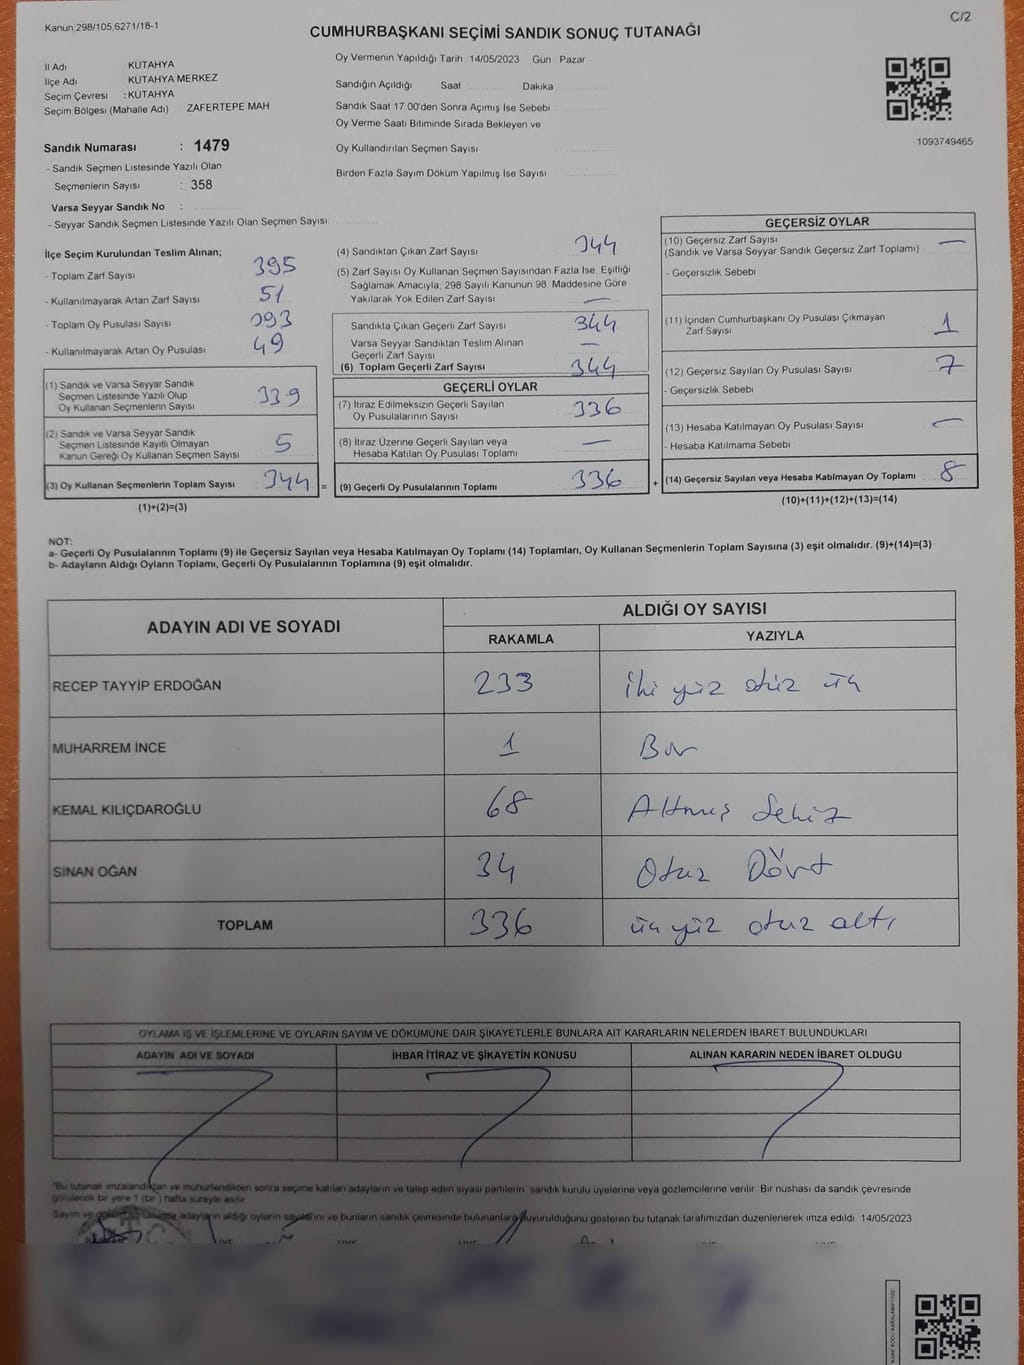 Kanun,298/105,6271/18-1
C/2
CUMHURBAŞKANI SEÇİMİ SANDIK SONUÇ TUTANAĞI
İl Adı KÜTAHYA
İlçe Adı : KÜTAHYA MERKEZ
Seçim Çevresi : KÜTAHYA
Seçim Bölgesi (Mahalle Adı) : ZAFERTEPE MAH
Sandık Numarası : 1479
- Sandık Seçmen Listesinde Yazılı Olan
Seçmenlerin Sayısı : 358
Varsa Seyyar Sandık No :
- Seyyar Sandık Seçmen Listesinde Yazılı Olan Seçmen Sayısı:
Oy Vermenin Yapıldığı Tarih 14/05/2023 Gün : Pazar
Sandığın Açıldığı Saat Dakika
Sandık Saat 17.00'den Sonra Açımış İse Sebebi
Oy Verme Saati Bitiminde Sırada Bekleyen ve
Oy Kullandırılan Seçmen Sayısı
Birden Fazla Sayım Döküm Yapılmış İse Sayısı
1093749465
İlçe Seçim Kurulundan Teslim Alınan;
- Toplam Zarf Sayısı 395
- Kullanılmayarak Artan Zarf Sayısı 51
- Toplam Oy Pusulası Sayısı 393
- Kullanılmayarak Artan Oy Pusulası 49
(1) Sandık ve Varsa Seyyar Sandık
Seçmen Listesinde Yazılı Olup
Oy Kullanan Seçmenlerin Sayısı 339
(2) Sandık ve Varsa Seyyar Sandık
Seçmen Listesinde Kayıtlı Olmayan
Kanun Gereği Oy Kullanan Seçmen Sayısı 5
(3) Oy Kullanan Seçmenlerin Toplam Sayısı 344 =
(1)+(2)=(3)
(4) Sandıktan Çıkan Zarf Sayısı 344
(5) Zarf Sayısı Oy Kullanan Seçmen Sayısından Fazla İse, Eşitliği
Sağlamak Amacıyla, 298 Sayılı Kanunun 98. Maddesine Göre
Yakılarak Yok Edilen Zarf Sayısı —
Sandıkta Çıkan Geçerli Zarf Sayısı 344
Varsa Seyyar Sandıktan Teslim Alınan
Geçerli Zarf Sayısı —
(6) Toplam Geçerli Zarf Sayısı 344
GEÇERLİ OYLAR
(7) İtiraz Edilmeksizin Geçerli Sayılan
Oy Pusulalarının Sayısı 336
(8) İtiraz Üzerine Geçerli Sayılan veya
Hesaba Katılan Oy Pusulası Toplamı —
(9) Geçerli Oy Pusulalarının Toplamı 336 +
GEÇERSİZ OYLAR
(10) Geçersiz Zarf Sayısı —
(Sandık ve Varsa Seyyar Sandık Geçersiz Zarf Toplamı)
- Geçersizlik Sebebi
(11) İçinden Cumhurbaşkanı Oy Pusulası Çıkmayan
Zarf Sayısı 1
(12) Geçersiz Sayılan Oy Pusulası Sayısı 7
- Geçersizlik Sebebi
(13) Hesaba Katılmayan Oy Pusulası Sayısı —
- Hesaba Katılmama Sebebi
(14) Geçersiz Sayılan veya Hesaba Katılmayan Oy Toplamı 8
(10)+(11)+(12)+(13)=(14)
NOT:
a- Geçerli Oy Pusulalarının Toplamı (9) ile Geçersiz Sayılan veya Hesaba Katılmayan Oy Toplamı (14) Toplamları, Oy Kullanan Seçmenlerin Toplam Sayısına (3) eşit olmalıdır. (9)+(14)=(3)
b- Adayların Aldığı Oyların Toplamı, Geçerli Oy Pusulalarının Toplamına (9) eşit olmalıdır.
ADAYIN ADI VE SOYADI
ALDIĞI OY SAYISI
RAKAMLA YAZIYLA
RECEP TAYYİP ERDOĞAN 233 iki yüz otuz üç
MUHARREM İNCE 1 Bir
KEMAL KILIÇDAROĞLU 68 Altmış Sekiz
SİNAN OĞAN 34 Otuz Dört
TOPLAM 336 üç yüz otuz altı
OYLAMA İŞ VE İŞLEMLERİNE VE OYLARIN SAYIM VE DÖKÜMÜNE DAİR ŞİKAYETLERLE BUNLARA AİT KARARLARIN NELERDEN İBARET BULUNDUKLARI
ADAYIN ADI VE SOYADI İHBAR İTİRAZ VE ŞİKAYETİN KONUSU ALINAN KARARIN NEDEN İBARET OLDUĞU
*Bu tutanak imzalandıktan ve mühürlendikten sonra seçime katılan adayların ve talep eden siyasi partilerin sandık kurulu üyelerine veya gözlemcilerine verilir. Bir nüshası da sandık çevresinde
görülecek bir yere 1 (bir) hafta süreyle asılır.
Sayım ve adayların aldığı oyların sayılarını ve bunların sandık çevresinde bulunanlara duyurulduğunu gösteren bu tutanak tarafımızdan düzenlenerek imza edildi. 14/05/2023